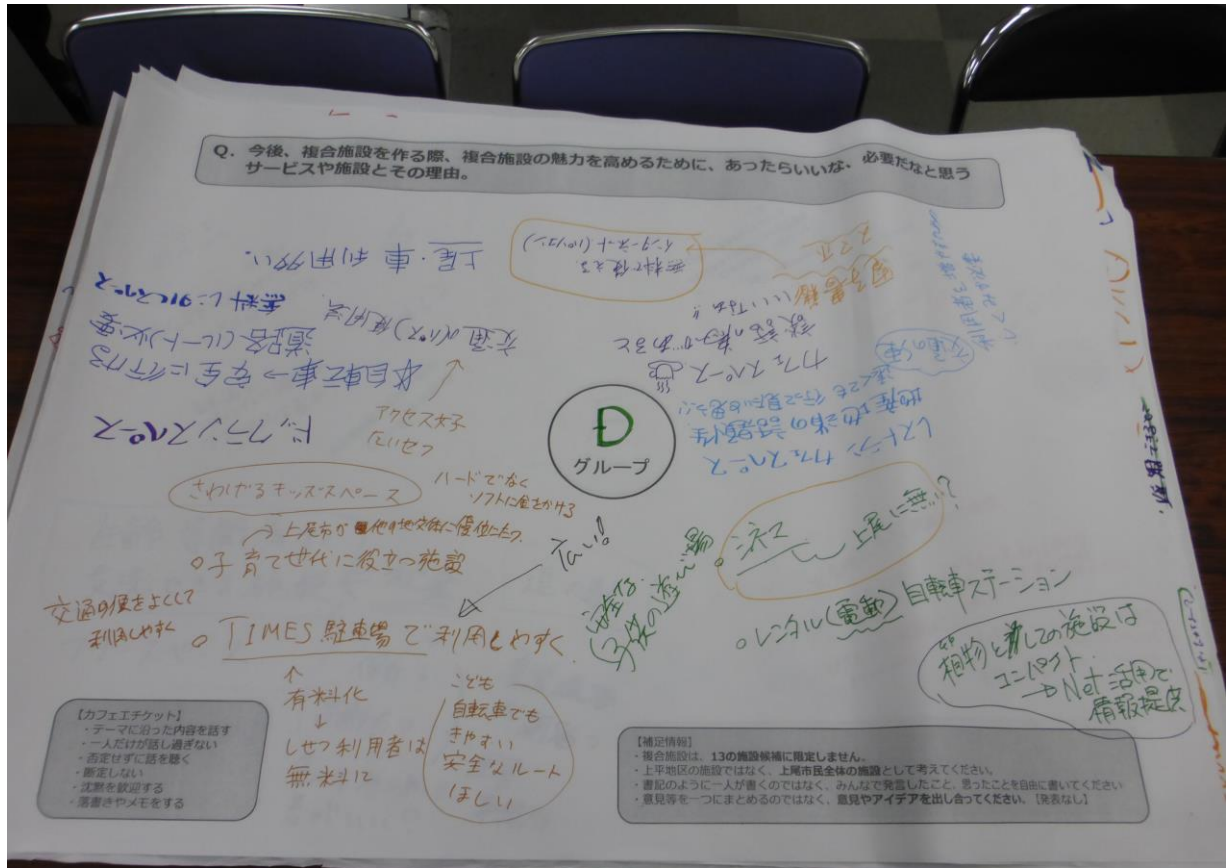 Q. 今後、複合施設を作る際、複合施設の魅力を高めるために、あったらいいな、必要だなと思う
サービスや施設とその理由。
上尾・車 利用多い
無料で使える
インターネット(パソコン)
スマホ
電子書籍
カフェスペース
談話の場が…あると
いいですね!!
交通(バス)使用法
※自転車→安全に行ける
道路(ルート)必要
無料レンタルスペース
ドッグランスペース
アクセス女子
たいせつ
レストラン カフェスペース
地産地消の話題性
遠くても行って見たいと思う!!
交通の便
D
グループ
さわげるキッズスペース
ハードでなく
ソフトに金をかける
→上尾市が他の地交体に優位にたつ
○子育て世代に役立つ施設
広い!
交通の便をよくして
利用しやすく
○TIMES駐車場で利用しやすく
↑
有料化
↓
しせつ利用者は
無料に
こども
自転車でも
きやすい
安全なルート
ほしい
安全な
子供の遊び場
上尾に無い?
○レンタル(電動)自転車ステーション
植物としての施設は
コンパクト
→Net活用で
情報提供
【カフェエチケット】
・テーマに沿った内容を話す
・一人だけが話し過ぎない
・否定せずに話を聴く
・断定しない
・沈黙を歓迎する
・落書きやメモをする
【補足情報】
・複合施設は、13の施設候補に限定しません。
・上平地区の施設ではなく、上尾市民全体の施設として考えてください。
・書記のように一人が書くのではなく、みんなで発言したこと、思ったことを自由に書いてください
・意見等を一つにまとめるのではなく、意見やアイデアを出し合ってください。【発表なし】